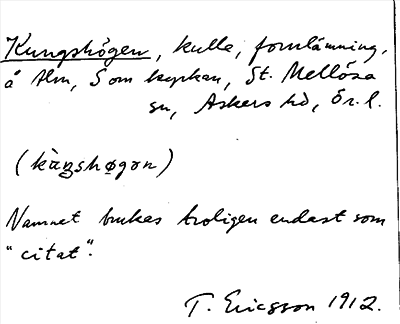 Kungshögen, kulle, fornlämning,
å Alm, S om kyrkan, St. Mellösa
sn, Askers hd, Ör. l.
(kàŋshøgən)
Namnet brukas troligen endast som
"citat".
T. Ericsson 1912.